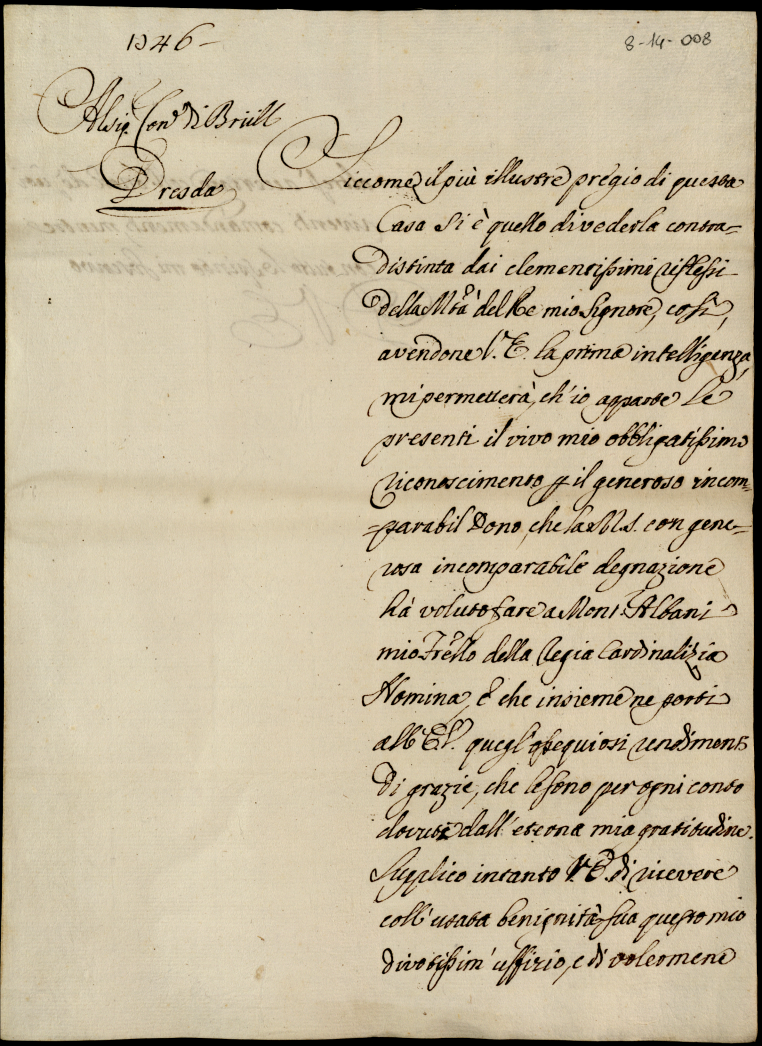 1746
8-14-008
Al Sig.r Con.e di Brüll
Dresda
Siccome il più illustre pregio di questa
Casa si è quello di vederla contra=
distinta dai clementissimi riflessi
della M.tà del Re mio Signore, così,
avendone l'E.V. la prima intelligenza,
mi permetterà, ch'io apporte le
presenti il vivo mio obbligatissimo
riconoscimento p il generoso incom=
=parabil Dono, che la M.S. con gene=
rosa incomparabile degnazione
hà voluto fare a Mons.r Albani
mio Fr̃ello della Regia Cardinalizia
Nomina, e che insieme ne porti
all'E.V. quegl'ossequiosi rendimenti
di grazie, che le sono per ogni conto
dovute dall'eterna mia gratitudine.
Supplico intanto V.E. di ricevere
coll'usata benignità sua questo mio
divotissim'uffizio, e di volermene